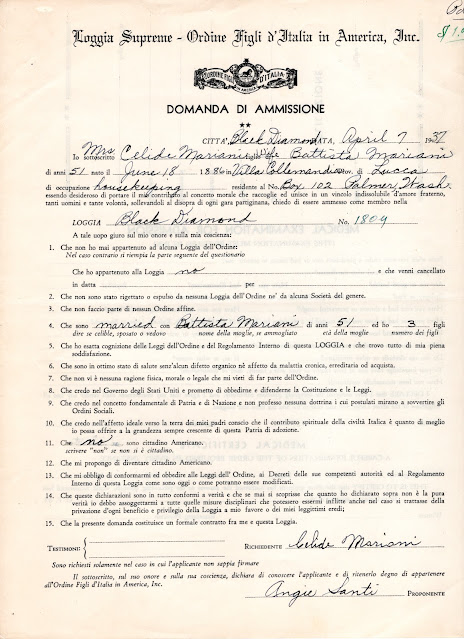 $1.
Loggia Supreme - Ordine Figli d'Italia in America, Inc.
ORDINE FIGLI D'ITALIA
IN AMERICA
DOMANDA DI AMMISSIONE
CITTÀ, Black Diamond DATA, April 7 1937
Io sottoscritto Mrs Celide Mariani figlio di Wife Battista Mariani
di anni 51 nato il June 18 1886 in Villa Collemandina Prov. di Lucca
di occupazione housekeeping residente al No. Box 102 Palmer, Wash.
essendo desideroso di portare il mio contributo al concetto morale che raccoglie ed unisce in un vincolo indissolubile d'amore fraterno,
tanti uomini e tante volontà, sollevandoli al disopra di ogni gara partigiana, chiedo di essere ammesso come membro nella
LOGGIA Black Diamond No. 1809
A tale uopo giuro sul mio onore e sulla mia coscienza:
1. Che non ho mai appartenuto ad alcuna Loggia dell'Ordine:
Nel caso contrario si riempia la parte seguente del questionario
Che ho appartenuto alla Loggia no e che venni cancellato
in datta per
2. Che non sono stato rigettato o espulso da nessuna Loggia dell'Ordine ne' da alcuna Società del genere.
3. Che non faccio parte di nessun Ordine affine.
4. Che sono married con Battista Mariani di anni 51 ed ho 3 figli
dire se celibe, sposato o vedovo nome della moglie, se ammogliato età della moglie numero dei figli
5. Che ho esatta cognizione delle Leggi dell'Ordine e del Regolamento Interno di questa LOGGIA e che trovo tutto di mia piena
soddisfazione.
6. Che sono in ottimo stato di salute senz'alcun difetto organico nè affetto da malattia cronica, ereditaria od acquista.
7. Che non vi è nessuna ragione fisica, morale o legale che mi vieti di far parte dell'Ordine.
8. Che credo nel Governo degli Stati Uniti e prometto di ubbidirne e difenderne la Costituzione e le Leggi.
9. Che credo nel concetto fondamentale di Patria e di Nazione e non professo nessuna dottrina i cui postulati mirano a sovvertire gli
Ordini Sociali.
10. Che credo nell'affetto ideale verso la terra dei miei padri conscio che il contributo spirituale della civiltà Italica è quanto di meglio
io possa offrire a la grandezza sempre crescente di questa Patria di adozione.
11. Che no sono cittadino Americano.
scrivere "non" se non si è cittadino.
12. Che mi propongo di diventare cittadino Americano.
13. Che mi obbligo di conformarmi ed ubbedire alle Leggi dell'Ordine, ai Decreti delle sue competenti autorità ed al Regolamento
Interno di questa Loggia come sono oggi o come potranno essere modificati.
14. Che queste dichiarazioni sono in tutto conformi a verità e che se mai si scoprisse che quanto ho dichiarato sopra non è la pura
verità io debbo assoggettarmi a tutte quelle misure disciplinari che potessero essermi inflitte anche nel caso si trattasse della
privazione d'ogni beneficio e privilegio della Loggia a mio favore o dei miei legittimi eredi;
15. Che la presente domanda costituisce un formale contratto fra me e questa Loggia.
TESTIMONI: RICHIEDENTE Celide Mariani
Sono richiesti solamente nel caso in cui l'applicante non sappia firmare
Il sottoscritto, sul suo onore e sulla sua coscienza, dichiara di conoscere l'applicante e di ritenerlo degno di appartenere
all'Ordine Figli d'Italia in America, Inc.
Angie Santi PROPONENTE